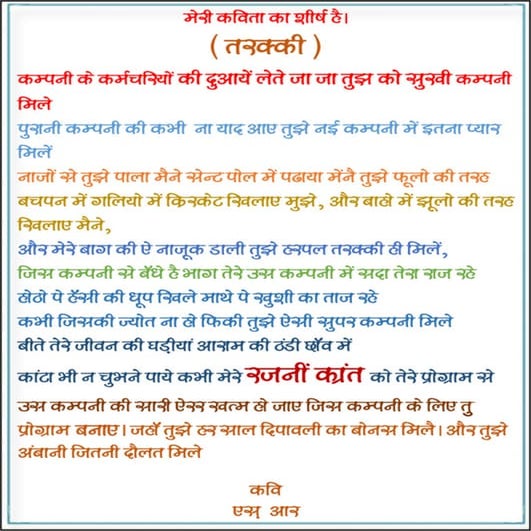 मेरी कविता का शीर्ष है।
( तरक्की )
कम्पनी के कर्मचरियों की दुआयें लेते जा जा तुझ को सुखी कम्पनी
मिले
पुरानी कम्पनी की कभी ना याद आए तुझे नई कम्पनी में इतना प्यार
मिलें
नाजों से तुझे पाला मैने सेन्ट पोल में पढाया मेंनै तुझे फूलो की तरह
बचपन में गलियो में क्रिकेट खिलाए मुझे, और बाहो में झूलो की तरह
खिलाए मैने,
और मेरे बाग की ऐ नाजूक डाली तुझे हरपल तरक्की ही मिलें,
जिस कम्पनी से बँधे है भाग तेरे उस कम्पनी में सदा तेरा राज रहे
होठो पे हँसी की धूप खिले माथे पे खुशी का ताज रहे
कभी जिसकी ज्योत ना हो फिकी तुझे ऐसी सुपर कम्पनी मिले
बीते तेरे जीवन की घडीयां आराम की ठंडी छॉव में
कांटा भी न चुभने पाये कभी मेरे रजनीं कांत को तेरे प्रोग्राम से
उस कम्पनी की सारी ऐरर खत्म हो जाए जिस कम्पनी के लिए तु
प्रोग्राम बनाए। जहाँ तुझे हर साल दिपावली का बोनस मिलै। और तुझे
अंबानी जितनी दौलत मिले
कवि
एस् आर